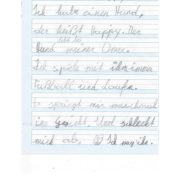 Ich habe einen Hund,
der heißt Happy. Der
Hund meiner Oma.
Ich spiele mit ihm immer
Fußball und Laufe.
Er springt mir manchmal
ins Gesicht. Und schleckt
mich ab. Ich mag ihn.